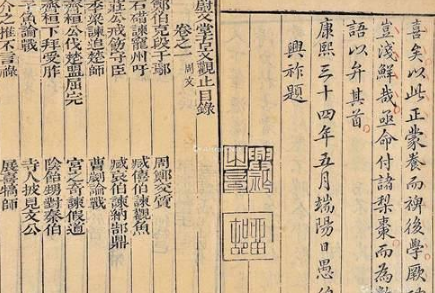 喜矣以此正蒙養而裨後學厥
豈淺鮮哉亟命付諸梨棗而為數
語以弁其首
康熙三十四年五月端陽日愚伯
興祚題
慰文堂古文觀止目錄
卷之一 周文
鄭伯克段于鄢 周鄭交質
石碏諫寵州吁 臧僖伯諫觀魚
莊公戒飭守臣 臧哀伯諫納郜鼎
季梁諫追楚師 曹劌論戰
齊桓公伐楚盟屈完 宮之奇諫假道
齊桓下拜受胙 陰飴甥對秦伯
子魚論戰 寺人披見文公
介之推不言祿 展喜犒師